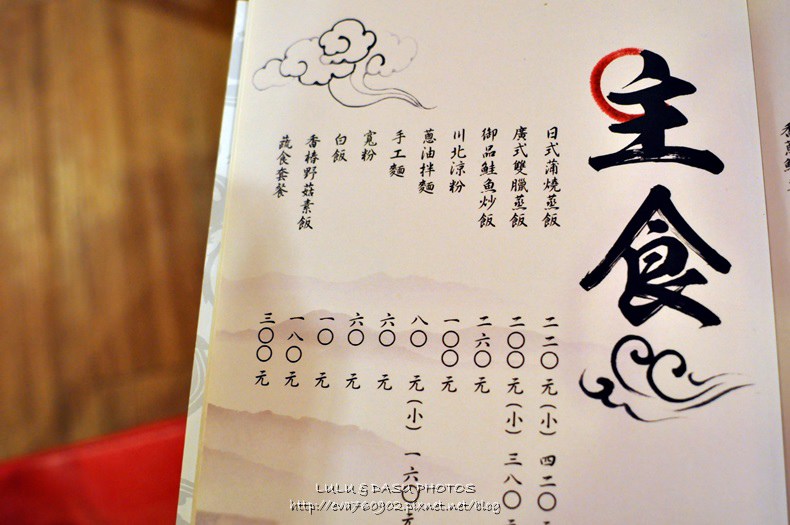 主食
日式蒲燒蒸飯 二二〇元(小) 四二〇
廣式雙臘蒸飯 二〇〇元(小) 三八〇元
御品鮭魚炒飯 二六〇元
川北涼粉 一〇〇元
蔥油拌麵 八〇元(小) 一六〇元
手工麵 六〇元
寬粉 六〇元
白飯 一〇元
香椿野菇素飯 一八〇元
蔬食套餐 三〇〇元
LULU & DASU PHOTOS
http://eva760902.pixnet.net/blog